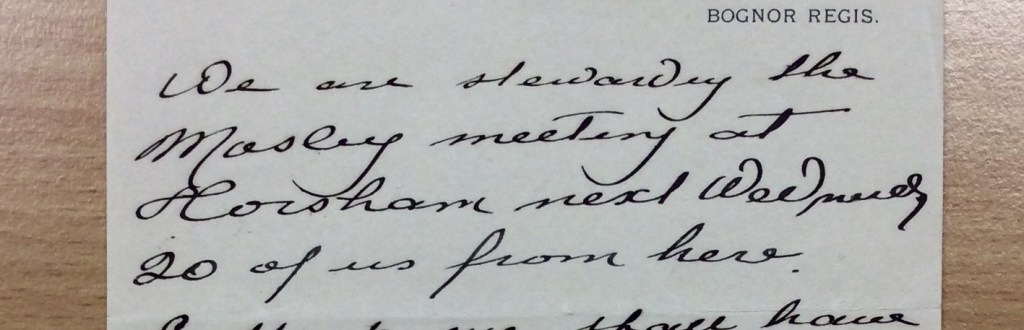 BOGNOR REGIS.
We are stewarding the
Mosley meeting at
Horsham next Wednesday
20 of us from here.
we shall have